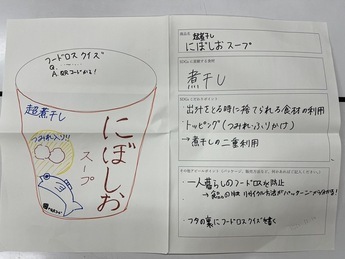 フードロス クイズ
Q.
A. QRコードから!
超煮干し
つみれ入り!!
にぼしお
スープ
商品名
超煮干し
にぼしおスープ
煮干し
出汁をとる時に捨てられる食材の利用
トッピング(つみれ、ふりかけ)
→煮干しの二重利用
一人暮らしのフードロスを防止
フタの裏にフードロスクイズを書く